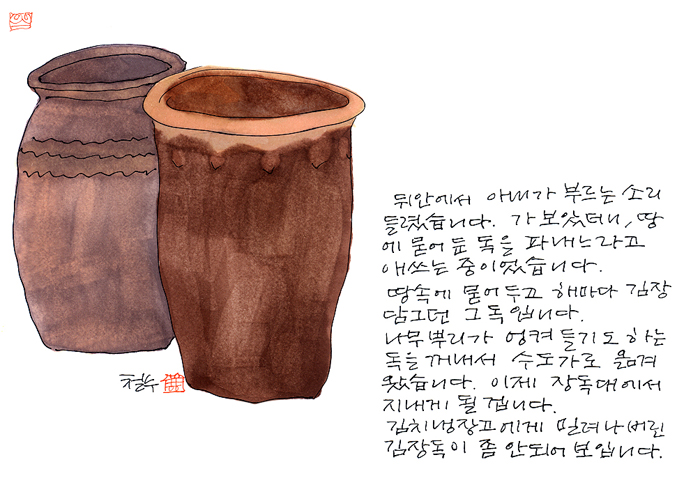 뒤안에서 아내가 부르는 소리
들렸습니다. 가 보았더니, 땅
에 묻어 둔 독을 파내느라고
애쓰는 중이었습니다.
땅속에 묻어두고 해마다 김장
담그던 그 독입니다.
나무 뿌리가 엉켜 들기도 하는
독을 꺼내서 수도가로 옮겨
왔습니다. 이제 장독대에서
지내게 될 겁니다.
김치냉장고에게 밀려나 버린
김장독이 좀 안되어 보입니다.
철수